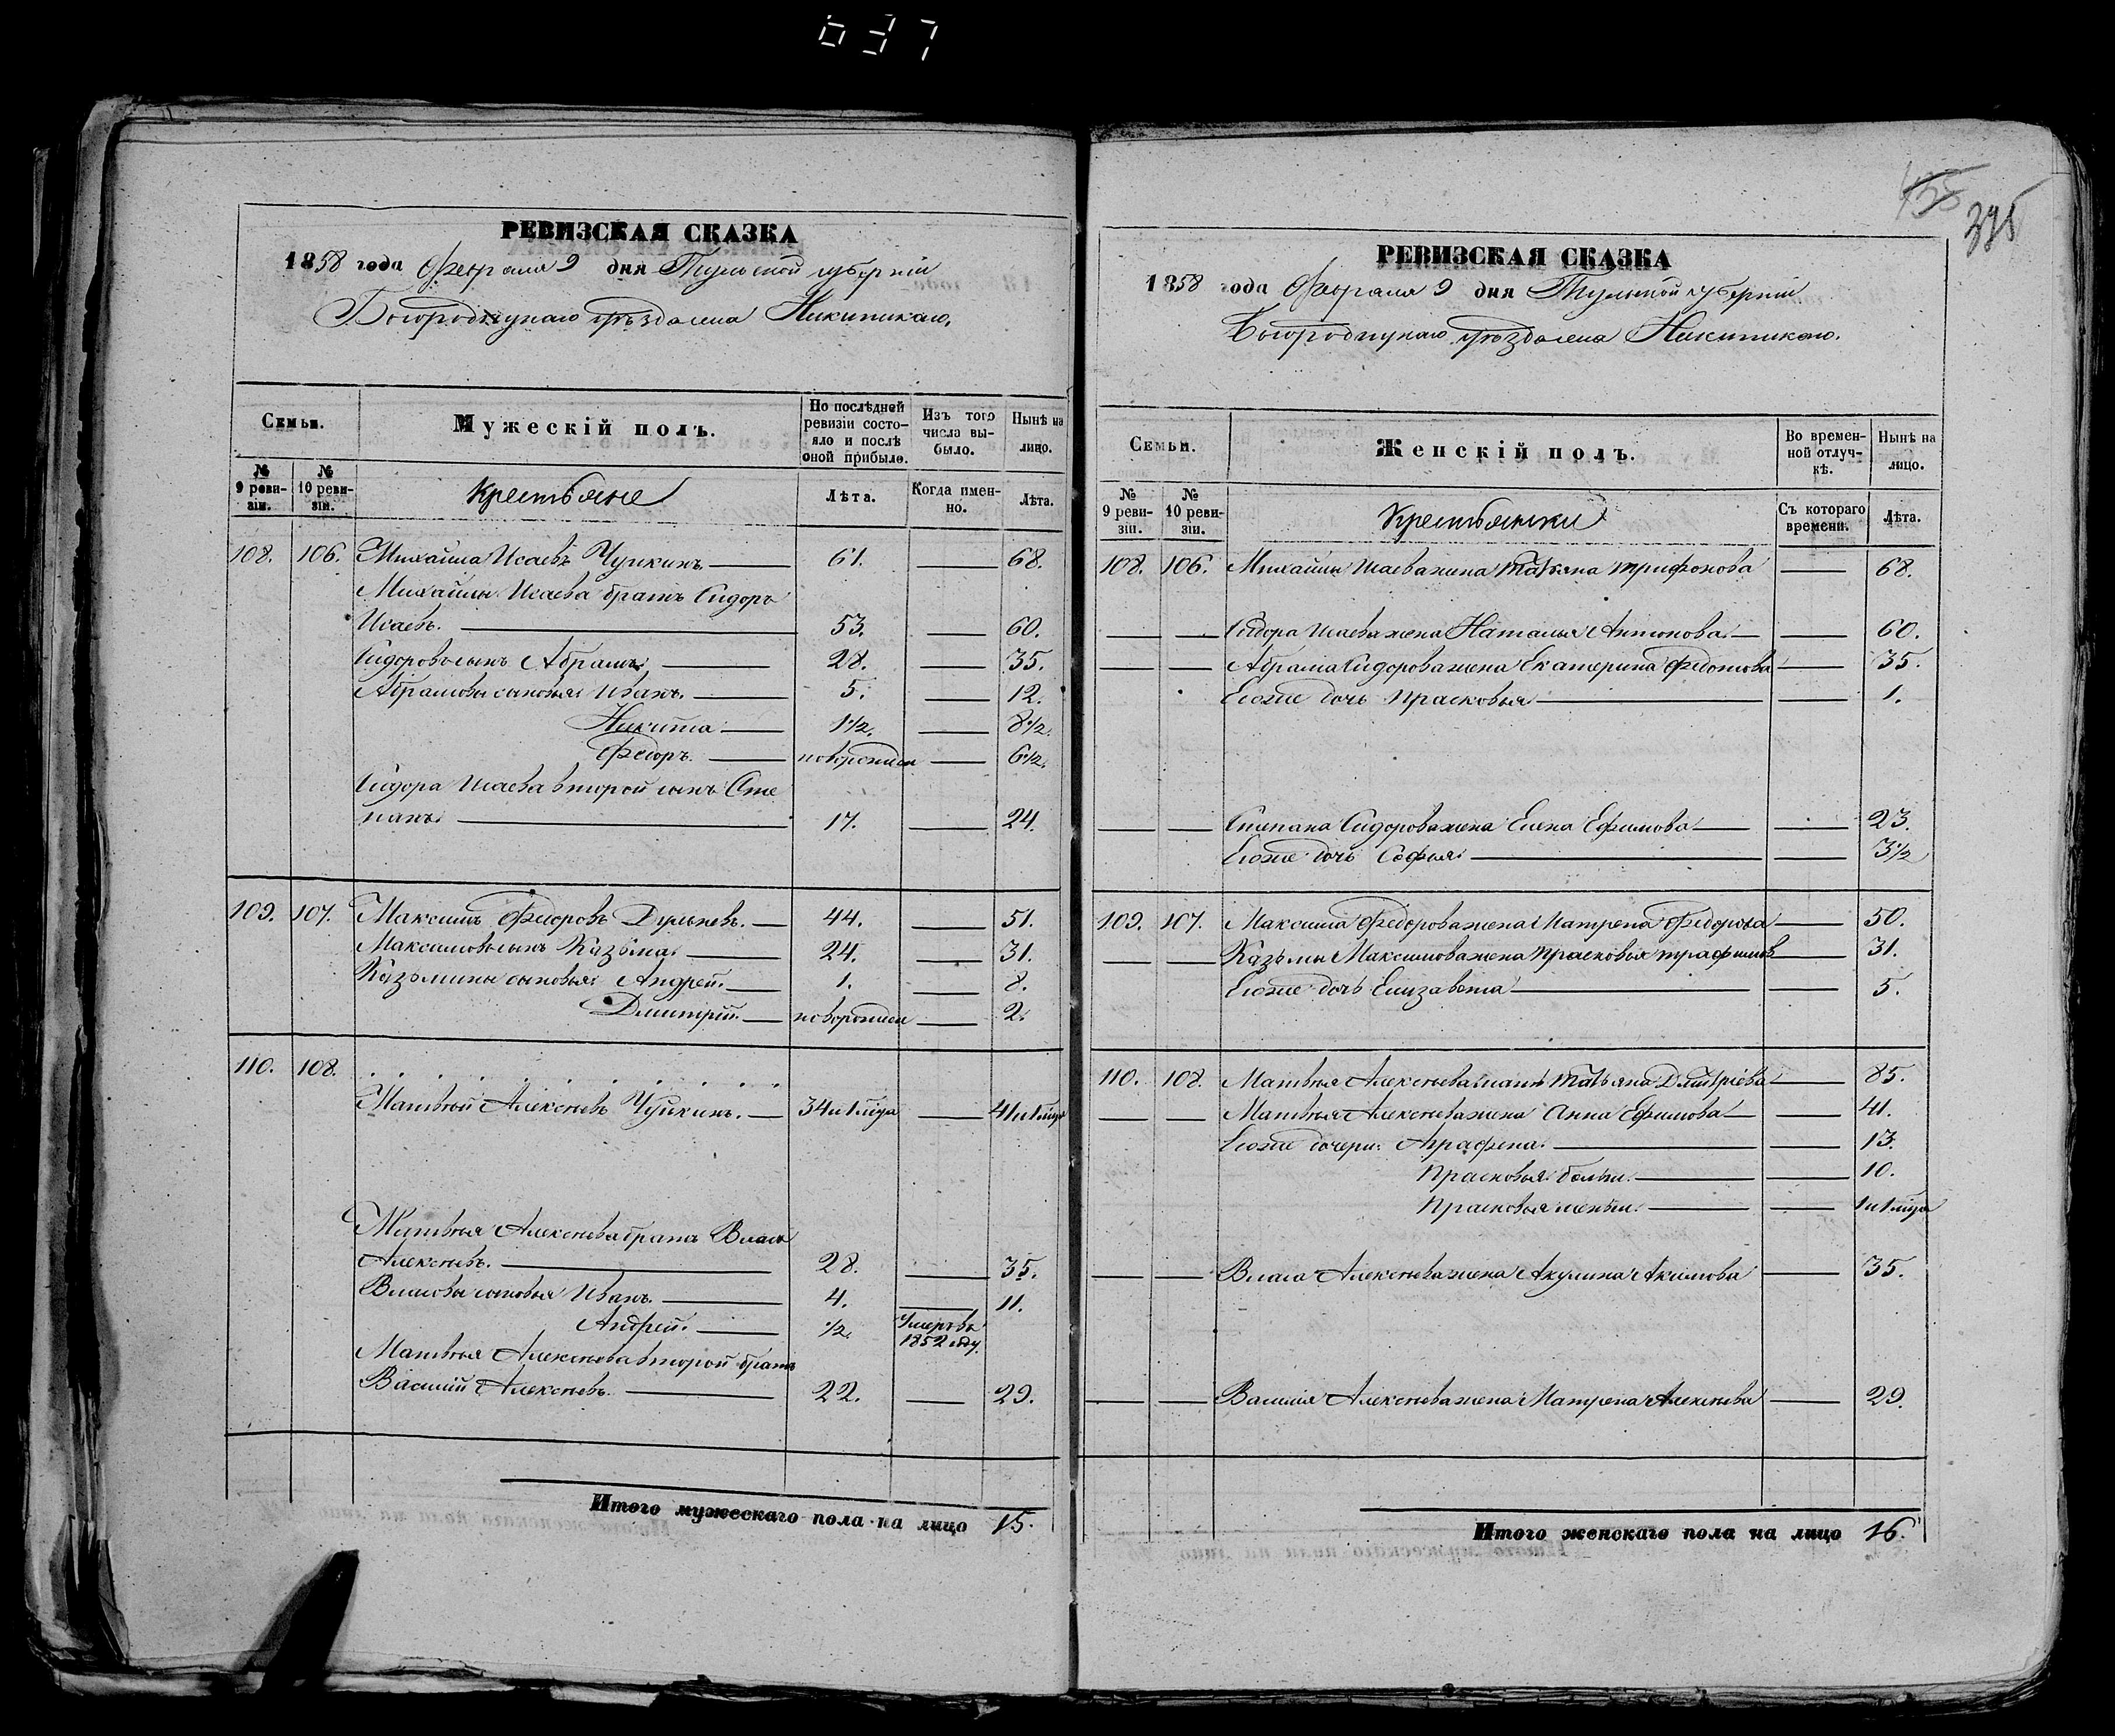 037
РЕВИЗСКАЯ СКАЗКА
1858 года Февраля 9 дня Тульской губерніи
Богородицкаго уѣзда села Никитскаго.
Семьи. Мужескій полъ. По послѣдней ревизіи состояло и послѣ оной прибыло. Изъ того числа выбыло. Нынѣ на лицо.
№ 9 ревизіи. № 10 ревизіи. Крестьяне Лѣта. Когда именно. Лѣта.
108. 106. Михайла Исаевъ Чушкинъ 61. 68.
Михайлы Исаева братъ Сидоръ
Исаевъ. 53. 60.
Сидоровъ сынъ Абрамъ. 28. 35.
Абрамовы сыновья: Иванъ. 5. 12.
Никита 1 1/2. 8 1/2.
Федоръ. новорожден 6 1/2.
Сидора Исаева второй сынъ Сте
панъ. 17. 24.
109. 107. Максимъ Федоровъ Дульневъ. 44. 51.
Максимовъ сынъ Казьма. 24. 31.
Казьмины сыновья: Андрей. 1. 8.
Дмитрій. новорожден 2.
110. 108. . . . . . . . . . . .
Матвѣй Алексѣевъ Чушкинъ. 34 и 1 мѣся 41 и 1 мѣся
Матвѣя Алексѣева братъ Власъ
Алексѣевъ. 28. 35.
Власовы сыновья Иванъ. 4. 11.
Андрей. 1/2. Умеръ въ 1852 году.
Матвѣя Алексѣева второй братъ
Василій Алексѣевъ. 22. 29.
Итого мужескаго пола на лицо 15.
435
335
РЕВИЗСКАЯ СКАЗКА
1858 года Февраля 9 дня Тульской губерніи
Богородицкаго уѣзда села Никитскаго.
Семьи. Женскій полъ. Во временной отлучкѣ. Нынѣ на лицо.
№ 9 ревизіи. № 10 ревизіи. Крестьянки Съ котораго времени. Лѣта.
108. 106. Михайлы Исаева жена Татьяна Трифонова 68.
Сидора Исаева жена Наталья Антонова 60.
Абрама Сидорова жена Екатерина Федотова 35.
Егоже дочь Прасковья 1.
Степана Сидорова жена Елена Ефимова 23.
Егоже дочь Софья. 3 1/2
109. 107. Максима Федорова жена Матрена Федорова 50.
Казьмы Максимова жена Прасковья Трафимов 31.
Егоже дочь Елизавета 5.
110. 108. Матвѣя Алексѣева мать Татьяна Дмитріева 85.
Матвѣя Алексѣева жена Анна Ефимова 41.
Егоже дочери: Аграфена. 13.
Прасковья больш. 10.
Прасковья меньш. 1 и 1 мѣся
Власа Алексѣева жена Акулина Акимова 35.
Василія Алексѣева жена Матрена Алексѣева 29.
Итого женскаго пола на лицо 16.